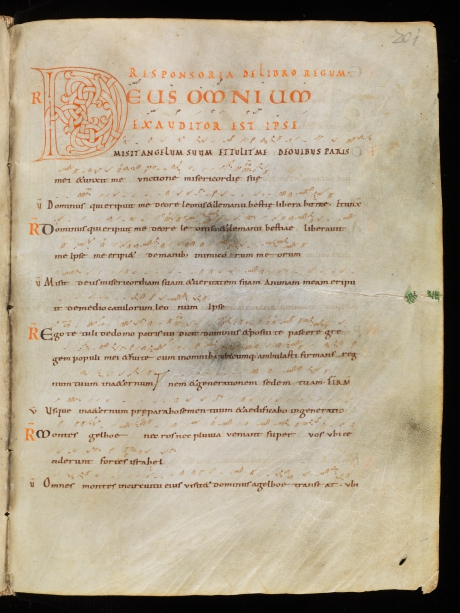 201
RESPONSORIA DE LIBRO REGUM
R DEUS OMNIUM
EXAUDITOR EST IPSE
MISIT ANGELUM SUUM ET TULIT ME DEOVIBUS PATRIS
mei &unxit me unctione misericordię suę
V Dominus qui eripuit me deore leonis &demanu bestię liberabit me. Etunx
R Dominus qui eripuit me deore le onis &demanu bestiae liberavit
me Ipse me eripi& demanibus inimico rum me orum
V Misit deus misericordiam suam &veritatem suam Animam meam eripu
it demedio catulorum leo num Ipse
R Ego te tuli dedomo patris tui dicit dominus &posui te pascere gre
gem populi mei &fui te cum inomnibus ubicumque ambulasti firmans reg
num tuum inaeternum
V Usque inaeternum preparabo semen tuum &aedificabo ingeneratio
R Montes gelboe nec ros nec pluvia veniant super vos ubi ce
ciderunt fortes israhel
V Omnes montes qui incircuitu eius visit& dominus agelboe transeat ubi